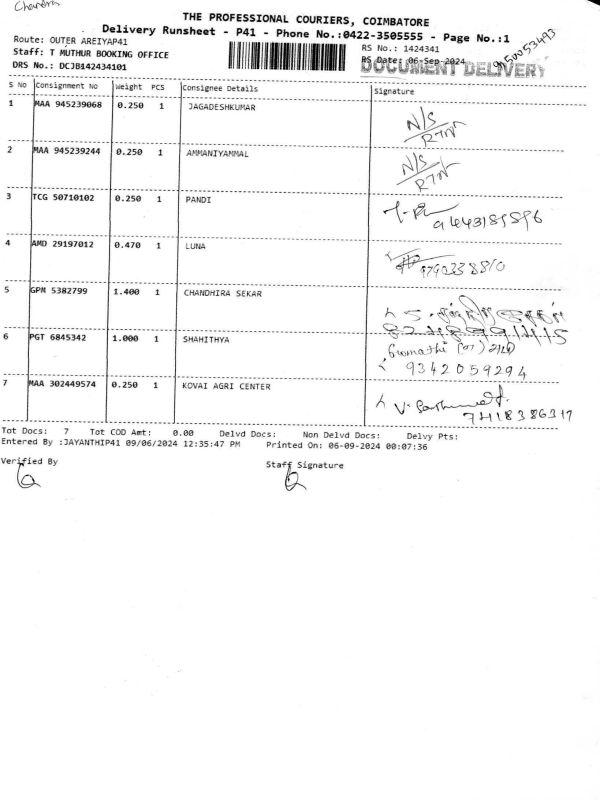 Chandra
THE PROFESSIONAL COURIERS, COIMBATORE
Delivery Runsheet - P41 - Phone No.:0422-3505555 - Page No.:1
Route: OUTER AREIYAP41
RS No.: 1424341
Staff: T MUTHUR BOOKING OFFICE
RS Date: 06-Sep-2024
DRS No.: DCJB142434101
DOCUMENT DELIVERY
S No Consignment No Weight PCS Consignee Details Signature
1 MAA 945239068 0.250 1 JAGADESHKUMAR N/S RTN
2 MAA 945239244 0.250 1 AMMANIYAMMAL N/S RTN
3 TCG 50710102 0.250 1 PANDI
4 AMD 29197012 0.470 1 LUNA 9790338810
5 GPM 5382799 1.400 1 CHANDHIRA SEKAR
6 PGT 6845342 1.000 1 SHAHITHYA
9342059294
7 MAA 302449574 0.250 1 KOVAI AGRI CENTER
Tot Docs: 7 Tot COD Amt: 0.00 Delvd Docs: Non Delvd Docs: Delvy Pts:
Entered By :JAYANTHIP41 09/06/2024 12:35:47 PM Printed On: 06-09-2024 00:07:36
Verified By Staff Signature